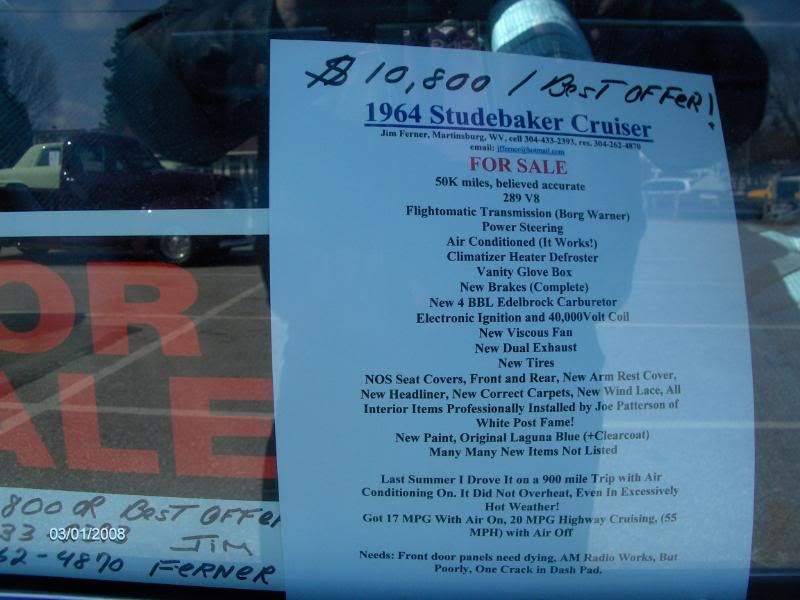 $10,800 / BEST OFFER!
1964 Studebaker Cruiser
Jim Ferner, Martinsburg, WV, cell 304-433-2393, res. 304-262-4870
email: jfferner@hotmail.com
FOR SALE
50K miles, believed accurate
289 V8
Flightomatic Transmission (Borg Warner)
Power Steering
Air Conditioned (It Works!)
Climatizer Heater Defroster
Vanity Glove Box
New Brakes (Complete)
New 4 BBL Edelbrock Carburetor
Electronic Ignition and 40,000Volt Coil
New Viscous Fan
New Dual Exhaust
New Tires
NOS Seat Covers, Front and Rear, New Arm Rest Cover,
New Headliner, New Correct Carpets, New Wind Lace, All
Interior Items Professionally Installed by Joe Patterson of
White Post Fame!
New Paint, Original Laguna Blue (+Clearcoat)
Many Many New Items Not Listed
Last Summer I Drove It on a 900 mile Trip with Air
Conditioning On. It Did Not Overheat, Even In Excessively
Hot Weather!
Got 17 MPG With Air On, 20 MPG Highway Cruising, (55
MPH) with Air Off
Needs: Front door panels need dying, AM Radio Works, But
Poorly, One Crack in Dash Pad.
OR
ALE
800 OR BEST OFFER
33 JIM
62-4870 FERNER
03/01/2008